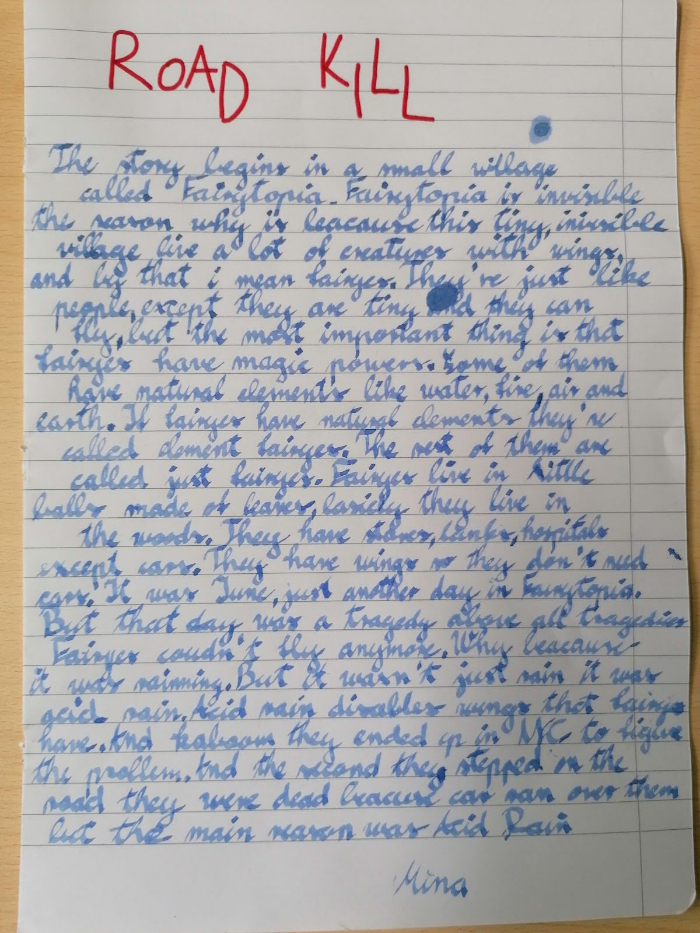 ROAD KILL
The story begins in a small village
called Fairytopia. Fairytopia is invisible
the reason why is beacause this tiny, invisible
village live a lot of creatures with wings,
and by that i mean fairyes. They're just like
people, except they are tiny and they can
fly, but the most important thing is that
fairyes have magic powers. Some of them
have natural elements like water, fire, air and
earth. If fairyes have natural elements they're
called element fairyes. The rest of them are
called just fairyes. Fairyes live in little
balls made of leaves, basicly they live in
the woods. They have stores, banks, hospitals
except cars. They have wings so they don't need
cars. It was June, just another day in Fairytopia.
But that day was a tragedy above all tragedies
Fairyes coudn't fly anymore. Why beacause
it was rainning. But it wasn't just rain it was
acid rain. Acid rain disables wings that fairyes
have. And kaboom they ended up in NYC to figure
the problem. And the second they stepped on the
road they were dead beacuse car ran over them
but the main reason was Acid Rain
Mina